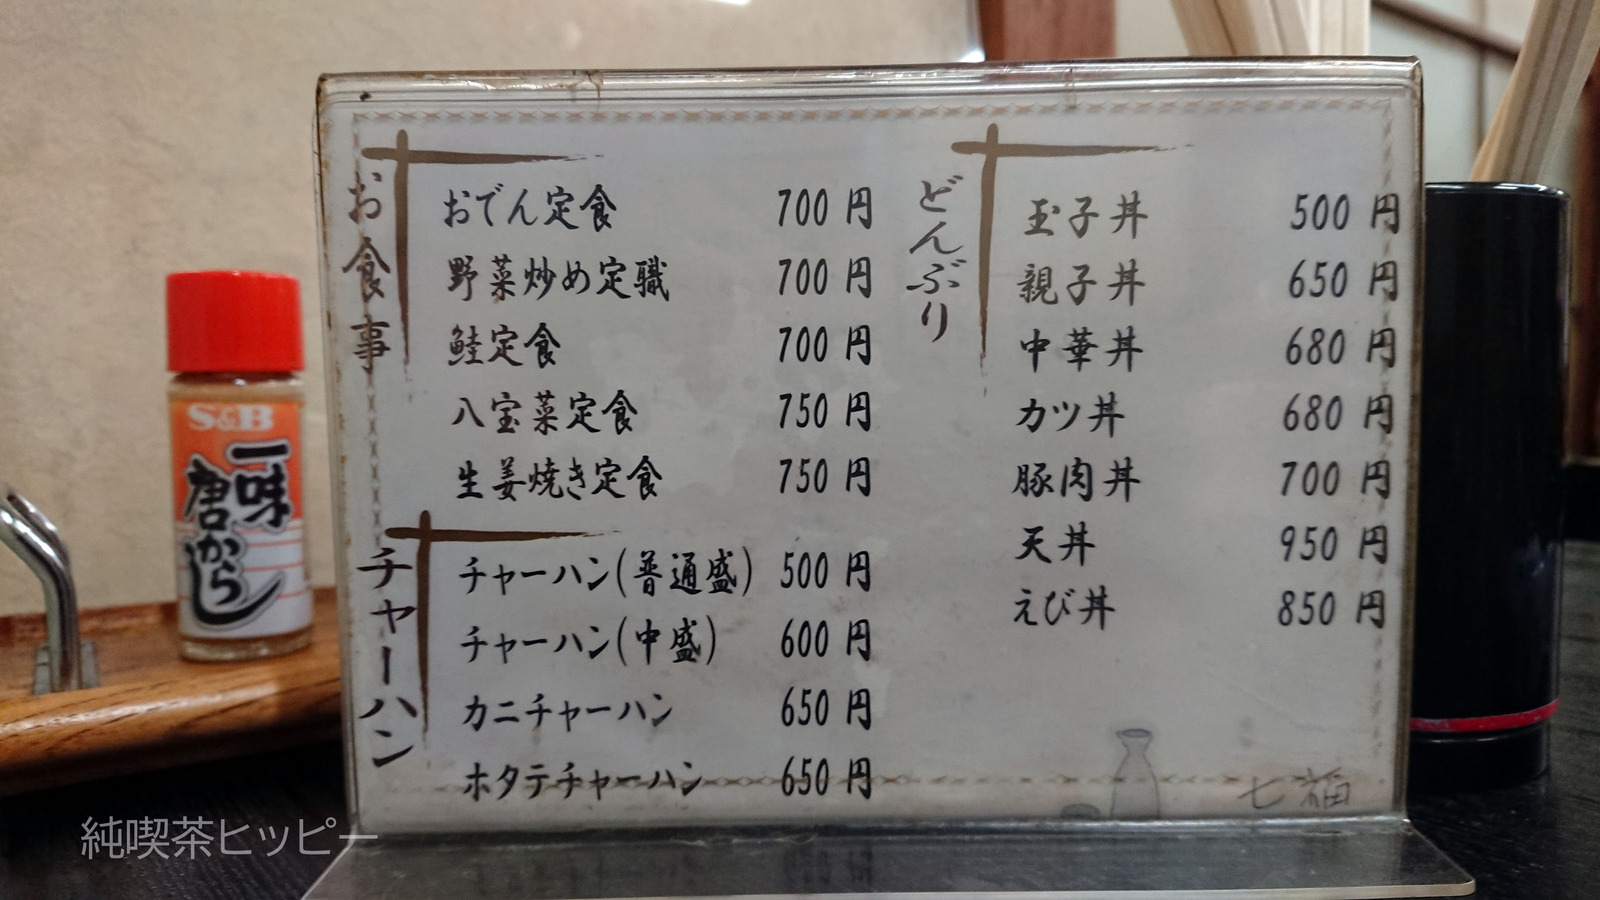 お食事
おでん定食 700 円
野菜炒め定職 700 円
鮭定食 700 円
八宝菜定食 750 円
生姜焼き定食 750 円
チャーハン
チャーハン(普通盛) 500 円
チャーハン(中盛) 600 円
カニチャーハン 650 円
ホタテチャーハン 650 円
どんぶり
玉子丼 500 円
親子丼 650 円
中華丼 680 円
カツ丼 680 円
豚肉丼 700 円
天丼 950 円
えび丼 850 円
七福
S&B
一味
唐からし
純喫茶ヒッピー